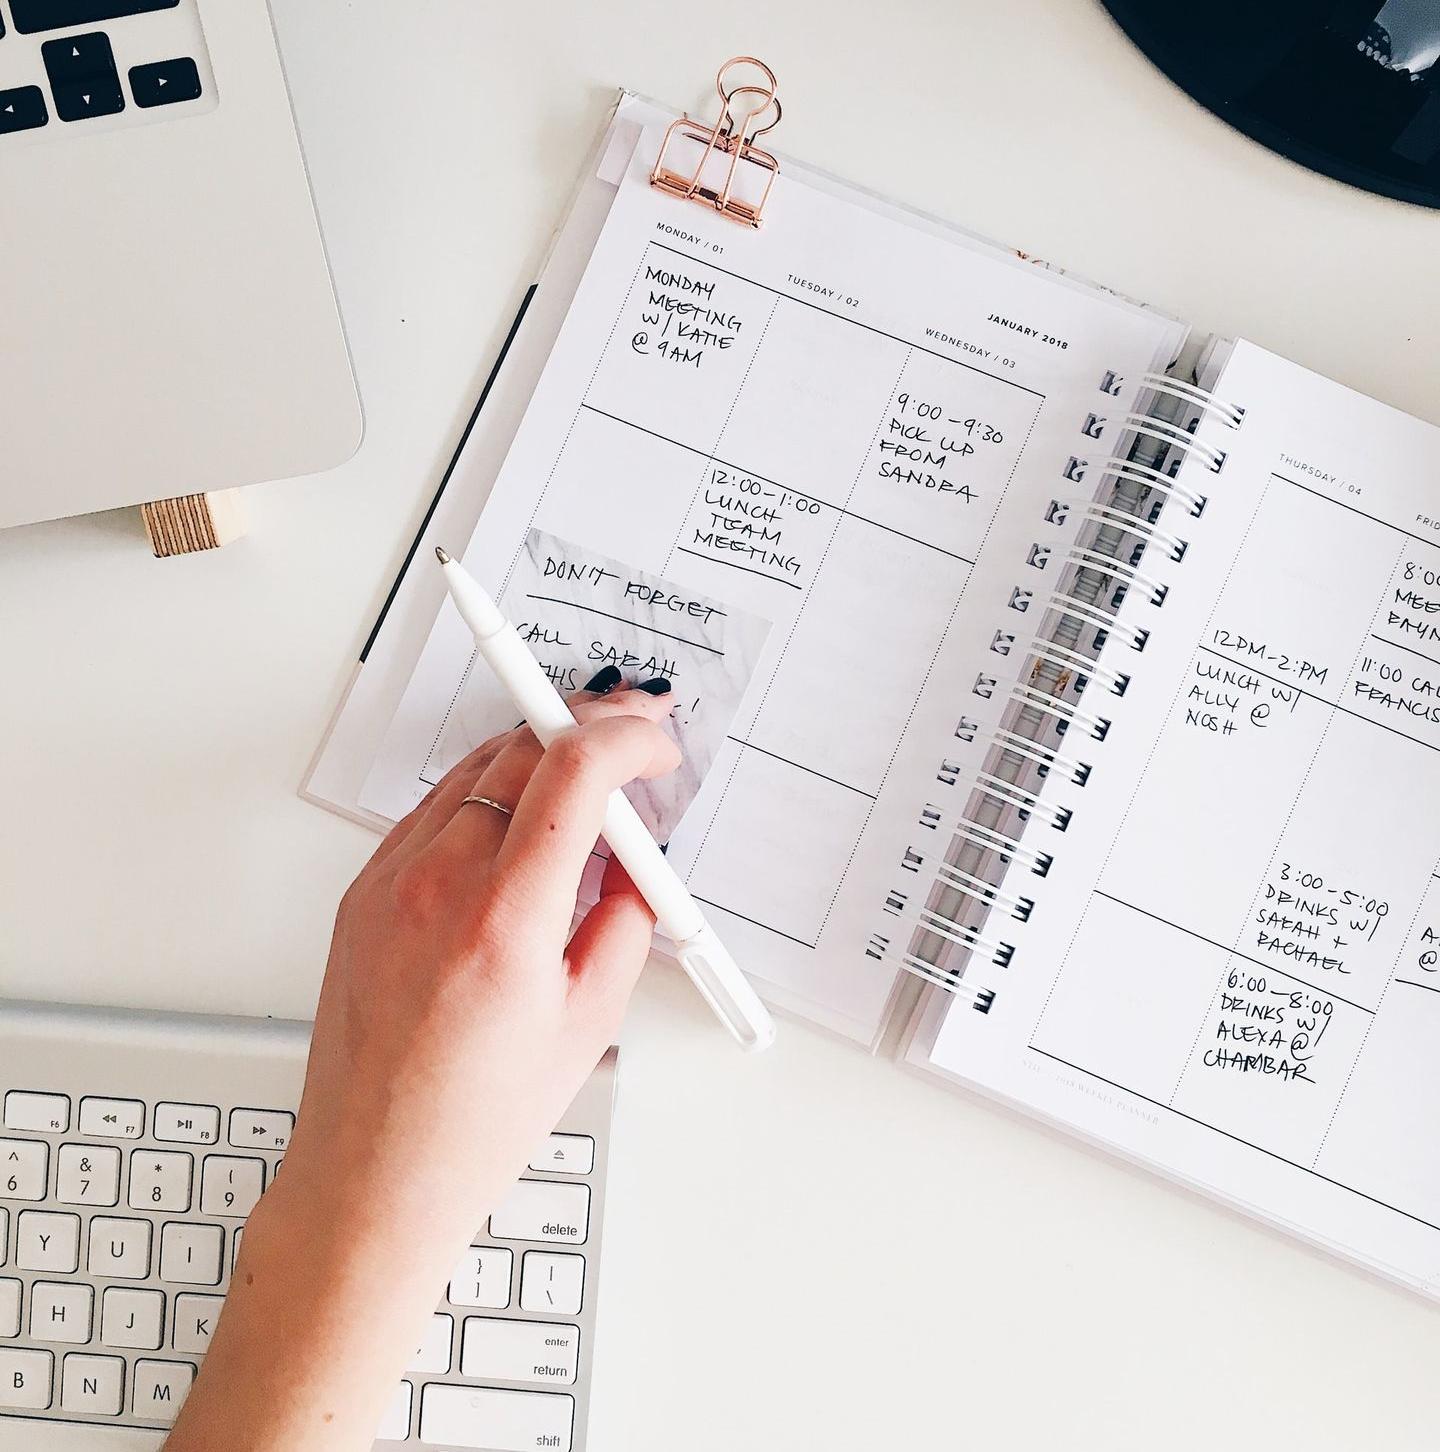 MONDAY / 01
MONDAY
MEETING
W/ KATIE
@ 9AM
TUESDAY / 02
12:00-1:00
LUNCH
TEAM
MEETING
JANUARY 2018
WEDNESDAY / 03
9:00-9:30
PICK UP
FROM
SANDRA
DON'T FORGET
CALL SARAH
THURSDAY / 04
12PM-2:PM
LUNCH W/
ALLY @
NOSH
3:00-5:00
DRINKS W/
SARAH +
RACHAEL
6:00-8:00
DRINKS W/
ALEXA @
CHAMBAR
11:00
@
2018 WEEKLY PLANNER
F6
F7
F8
F9
^
6
&
7
*
8
(
9
delete
Y
U
I
}
]
|
\
H
J
K
enter
return
B
N
M
shift